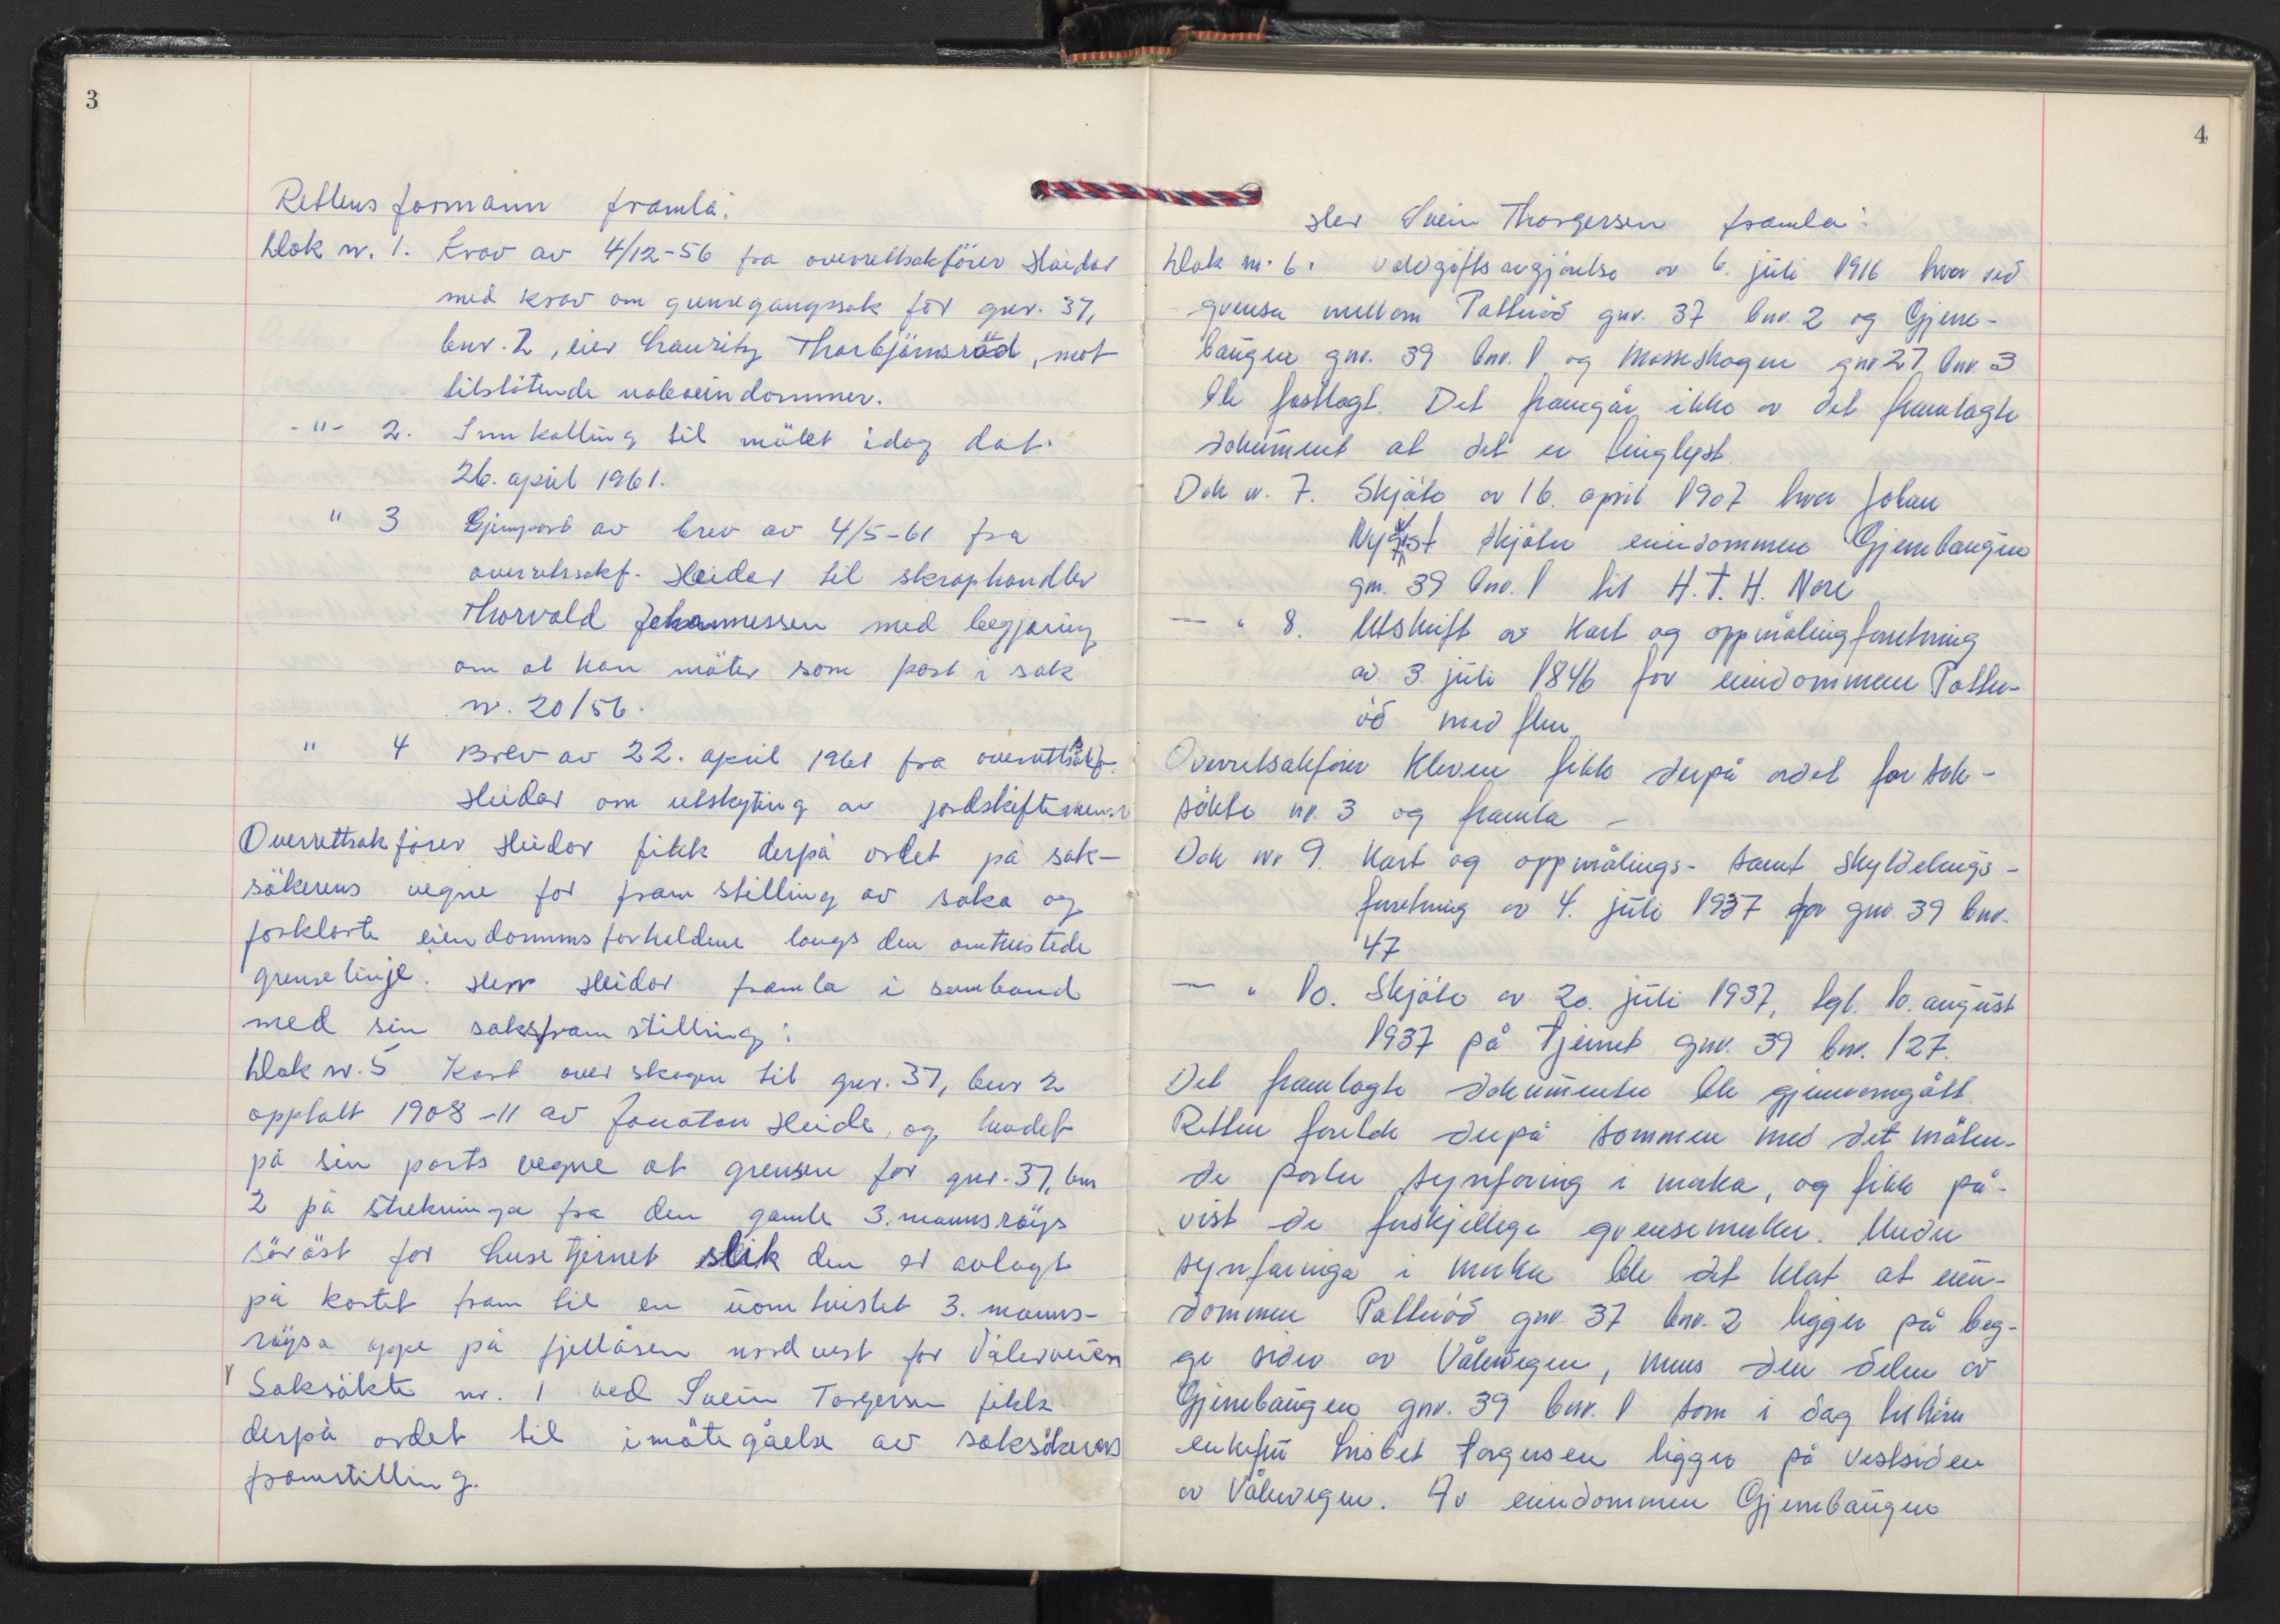 3
Rettens formann framla:
Dok nr. 1. Krav av 4/12-56 fra overrettsakfører Heider
med krav om grensegangssak for gnr. 37,
bnr. 2, eier Lauritz Thorbjörnsröd, mot
tilstötende naboeindommer.
-"- 2. Innkalling til mötet idag dat.
26. april 1961.
" 3 Gjenpart av brev av 4/5-61 fra
overretssakf. Heider til skraphandler
Thorvald Johannessen med begjæring
om at han möter som part i sak
nr. 20/56.
" 4 Brev av 22. april 1961 fra overettsakf.
Heider om utskyting av jordskiftemenn
Overrettsakförer Heider fikk derpå ordet på sak-
sökerens vegne for fram stilling av saka og
forklarte eiendommsforholdene langs den omtvistede
grenselinje. Herr Heider framla i samband
med sin saksfram stilling:
Dok nr. 5 Kart over skogen til gnr. 37, bnr 2
opptatt 1908-11 av Jonatan Heide, og hevdet
på sin parts vegne at grensen for gnr. 37, bnr
2 på strekninga fra den gamle 3. mannsröys
söröst for Lusetjernet slik den er avlagt
på kartet fram til en uomtvistet 3. manns-
röysa oppe på fjellåsen nordvest for Vålerveien
Saksökte nr. 1 ved Svein Torgersen fikk
derpå ordet til imötegåelse av saksökerens
framstilling.
4
Her Svein Thorgersen framla:
Dok nr. 6. Voldgiftsavgjörelse av 6. juli 1916 hvor ved
grensa mellom Patteröd gnr. 37 bnr. 2 og Gjerre-
bangen gnr. 39 bnr. 1 og Mosseskogen gnr 27 bnr. 3
ble fastlagt. Det framgår ikke av det framlagte
dokument at det er tinglyst.
Dok nr. 7. Skjöte av 16. april 1907 hvor Johan
skjöter eiendommen Gjerrebangen
gnr. 39 bnr. 1 til H. T. H. Nore
— " 8. Utskrift av Kart og oppmålingforretning
av 3 juli 1846 for eiendommen Patter-
öd med flere
Overretsakförer Kleven fikk derpå ordet for sak-
sökte nr. 3 og framla –
Dok nr 9. Kart og oppmålings- samt skylddelings-
forretning av 4. juli 1937 for gnr. 39 bnr.
47
— " 10. Skjöte av 20. juli 1937, tgl. 10. august
1937 på Tjernet gnr. 39 bnr. 127.
Det framlagte dokumenter ble gjennomgått.
Retten foretok derpå sammen med det möten-
de parter synfaring i marka, og fikk på-
vist de forskjellige grensemerker. Under
synfaringa i marka ble det klart at eien-
dommen Patteröd gnr. 37 bnr. 2 ligger på beg-
ge sider av Vålervegen, mens den delen av
Gjerrebangen gnr. 39 bnr. 1 som i dag tilhörer
enkefru Lisbet Torgersen ligger på vestsiden
av Vålervegen. Av eiendommen Gjerrebangen